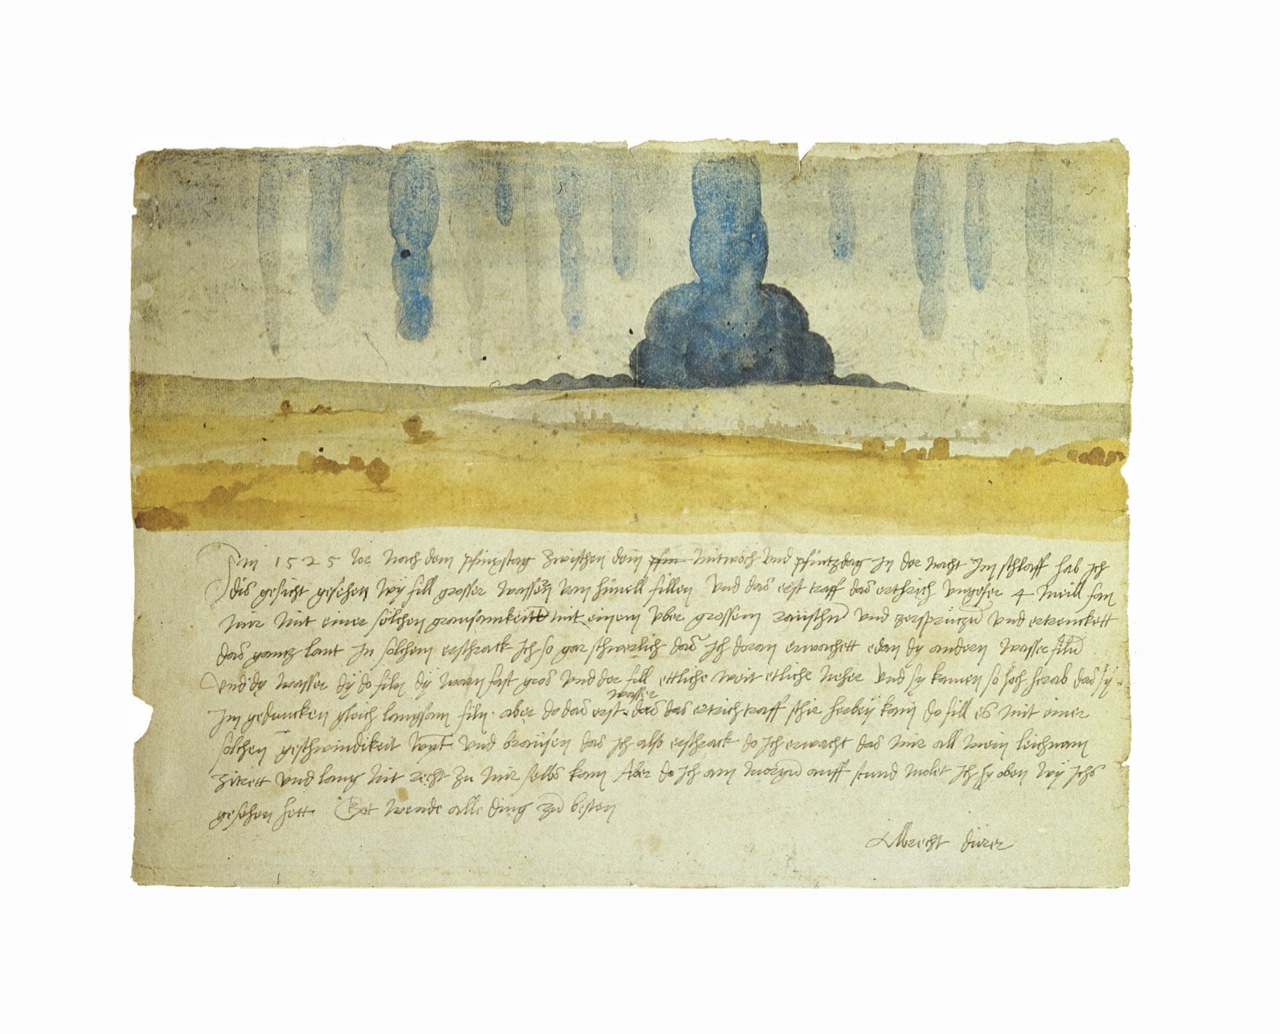 Im 1525 Jor nach dem pfinxstag zwischen dem pfin mitwoch und pfintzdag in der nacht im schlaff hab ich
dis gesicht gesehen wy fill grosser wassern vom himell fillen Und das erst traff das erthrich ungefer 4 meill fan
mir mit einer solchen grausamkeitt mit einem uber grossem raüschn und zersprützn und ertrenckett
das gantz lant In solchem erschrack ich so gar schwerlich das ich doran erwachett edan dy andern wasser filn
und dy wasser dy do filn dy warn fast gros und der fill ettliche weit etliche neher und sy kamen so hoch herab das sy
wasser
im gedancken gleich langsam filn. aber do das erst das das ertrich traff schir herbey kam do fill es mit einer
solchen geschwindikeit wynt und braüsen das ich also erschrack do ich erwacht das mir all mein leichnam
zitrett und lang nit recht zu mir selbs kam Aber do ich am morgn auff stund molet ich hy oben wy ichs
gesehen hett Got wende alle ding zu besten
Albrecht dürer